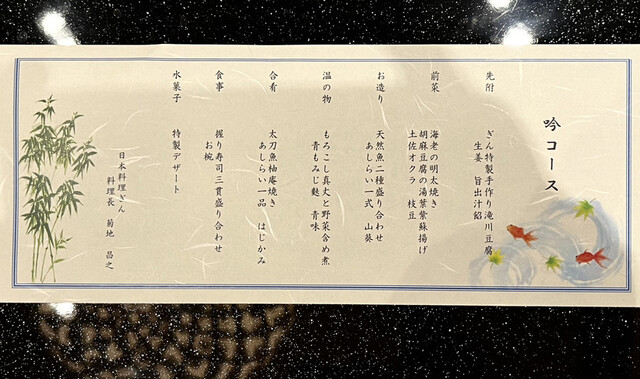 吟コース
先附
ぎん特製手作り滝川豆腐
生姜 旨出汁餡
前菜
海老の明太焼き
胡麻豆腐の湯葉紫蘇揚げ
土佐オクラ 枝豆
お造り
天然魚二種盛り合わせ
あしらい一式 山葵
温の物
もろこし真丈と野菜含め煮
青もみじ麩 青味
合肴
太刀魚柚庵焼き
あしらい一品 はじかみ
食事
握り寿司三貫盛り合わせ
お椀
水菓子
特製デザート
日本料理ぎん
料理長 菊地 昌之